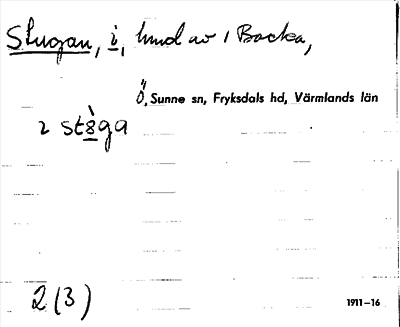 Stugan, i, hmd av 1 Backa,
Ö, Sunne sn, Fryksdals hd, Värmlands län
2 st8̀ga
2 (3)
1911–16